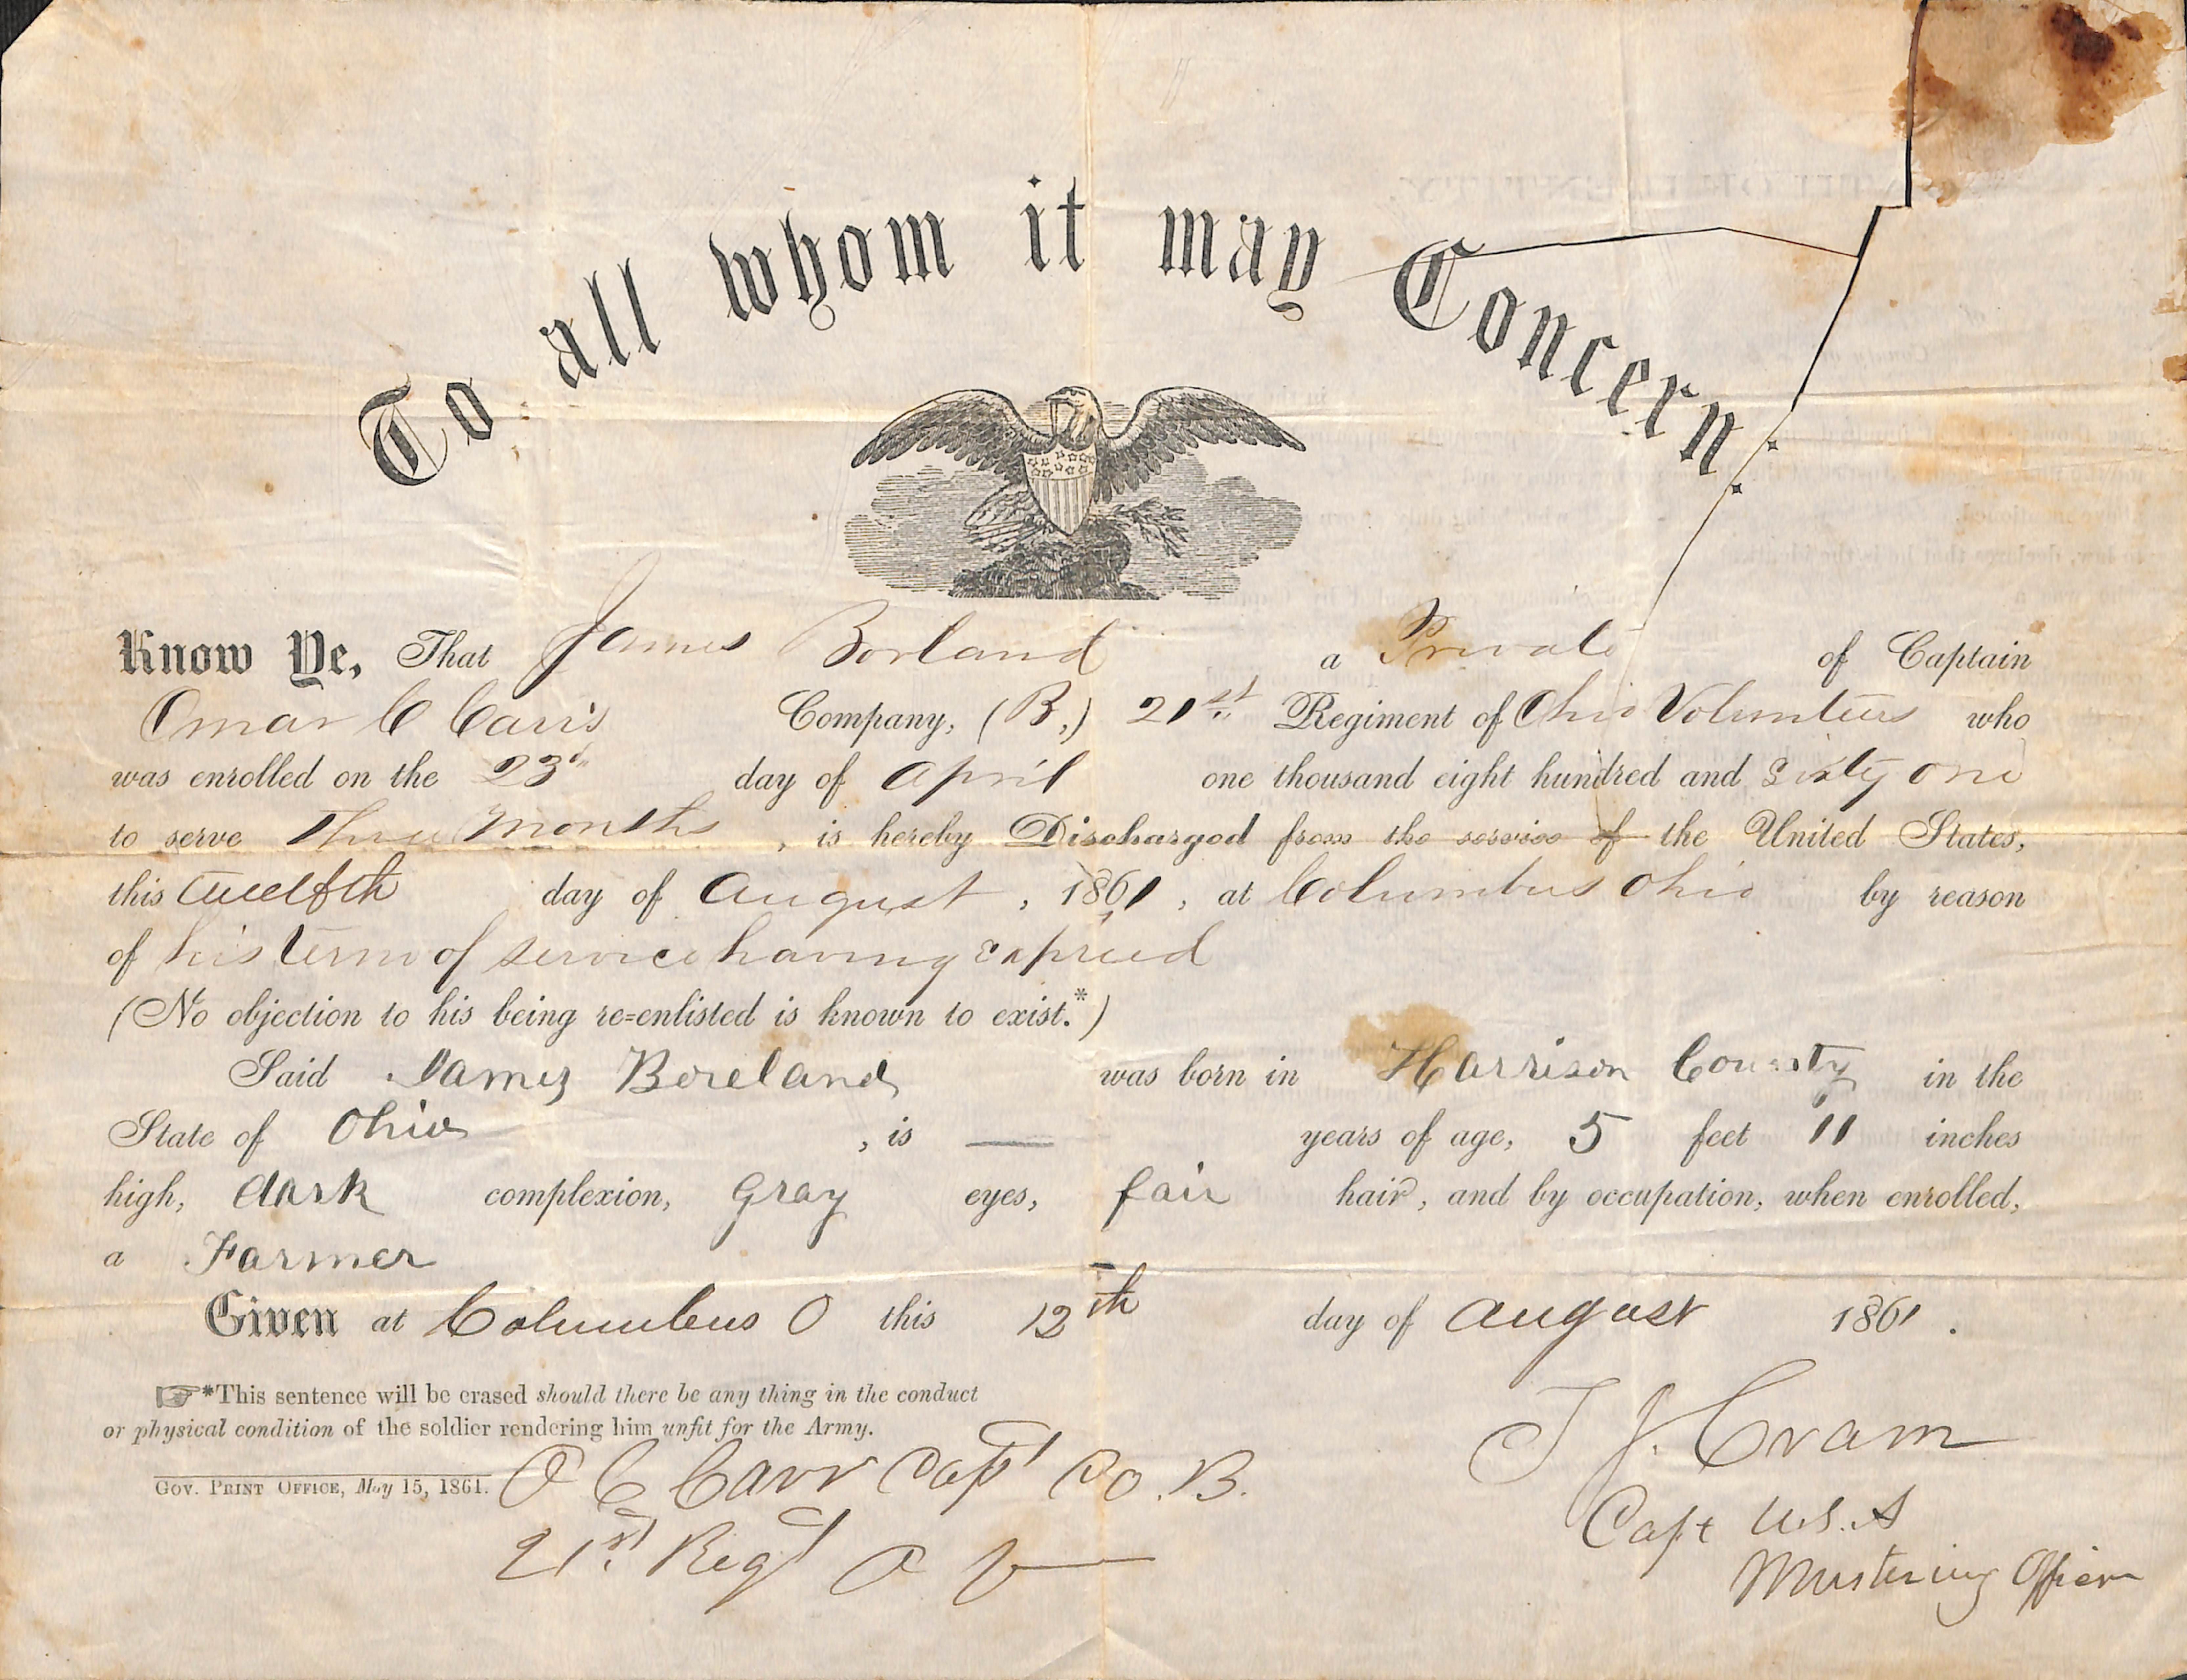 To all whom it may Concern:
Know Ye, That James Borland a Private of Captain
Omar C Carr's Company, (B,) 21st Regiment of Ohio Volunteers who
was enrolled on the 23d day of April one thousand eight hundred and Sixty one
to serve Three Months, is hereby Discharged from the service of the United States,
this twelfth day of August, 1861, at Columbus Ohio by reason
of his term of service having expired
(No objection to his being re=enlisted is known to exist.*)
Said James Boreland was born in Harrison County in the
State of Ohio, is — years of age, 5 feet 11 inches
high, dark complexion, Gray eyes, fair hair, and by occupation, when enrolled,
a Farmer
Given at Columbus O this 12th day of August 1861.
☞*This sentence will be erased should there be any thing in the conduct
or physical condition of the soldier rendering him unfit for the Army.
Gov. Print Office, May 15, 1861.
O C Carr Capt Co. B.
21st Regt O V
T J. Cram
Capt U.S.A
Mustering Officer